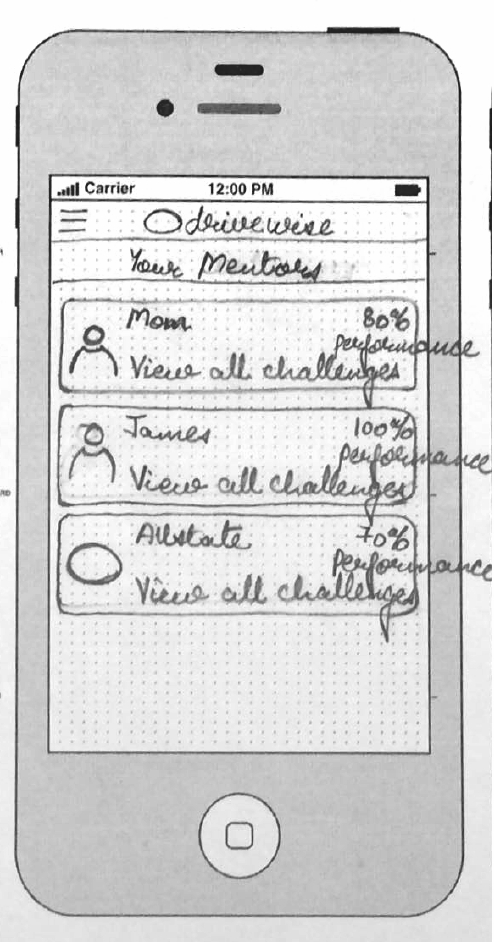 Carrier 12:00 PM
drivewise
Your Mentors
Mom 80%
performance
View all challenges
James 100%
performance
View all challenges
Allstate 70%
performance
View all challenges